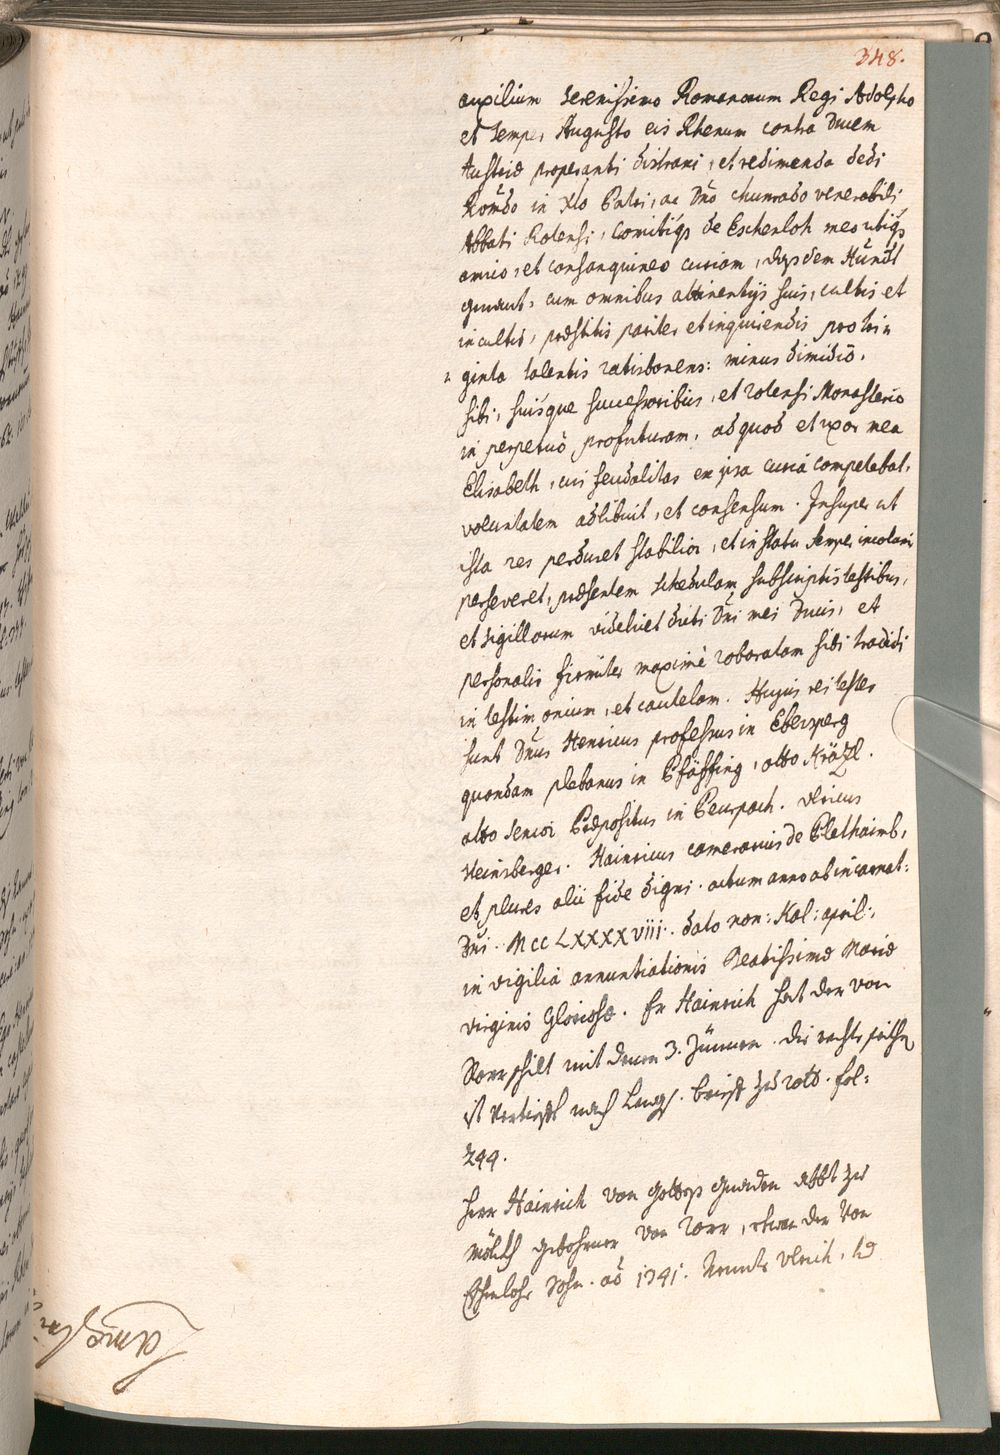 348.
auxilium Serenissimo Romanorum Regi Adolpho
et semper Augusto eis Rhenum contra Ducem
Austriæ properanti distraxi, et redimenda dedi
in Xto Patri, ac Dño Chunrado venerabili
Abbati Rotensi, de Eschenloh meo
amico, et consanguineo curiam,
cum omnibus attinentijs suis, cultis et
incultis, et inquirendis pro tri
ginta talentis ratisbonens: minus dimidiō,
sibi, suisque successoribus, et Rotensi Monasterio
in perpetuō profuturam, ad quod et uxor mea
Elisabeth, cui feudalitas ex ipsa curia competebat,
voluntatem adhibuit, et consensum. Insuper ut
ista res perduret stabilior, et in statu semper incolumi
perseveret, præsentem schedulam subscriptis testibus,
et sigillorum videlicet Dñi mei Ducis, et
personalis firmiter maximè roboratam sibi tradidi
in testimonium, et cautelam. Hujus rei testes
sunt Dñus Henricus professus in Ebersperg
quondam plebanus in Pfäffing, otto Kräzl.
otto senior Præpositus in Peurpach. Ulricus
Heinsberger. Hainricus camerarius de Plethaimb,
et plures alii fide digni. actum anno ab incarnat:
Dñi. MCCLXXXXVIII. dato non: Kal: april:,
in vigilia annuntiationis Beatissimæ Mariæ
virginis Gloriosæ. Er Hainrich hat den von
Rorr schilt mit denen 3. Zünnen. die
ist nach brieff zu rott. fol:
299.
Herr Hainrich von gottes gnaden abbt zu
gebohrner von rorr, etwan der von
Sohn. aō 1341. Ulrich,